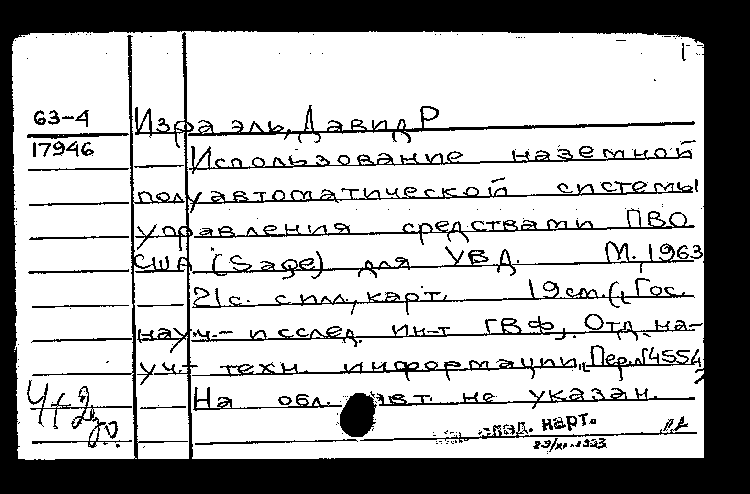 63-4
17946
Израэль, Давид Р
Использование наземной
полуавтоматической системы
управления средствами ПВО
США (Sage) для УВД. М., 1963
21 с. с илл., карт. 19 см. (Гос.
науч.-исслед. ин-т ГВФ, Отд. на-
уч-т техн. информации, Пер. №4554
На обл. авт. не указан.
след. карт.